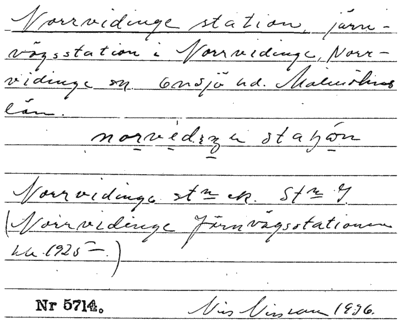 Norrvidinge station, järn-
vägsstation i Norrvidinge, Norr-
vidinge sn Onsjö hd. Malmöhus
län.
norvediŋə staʃón
Norrvidinge stn ek. Stn
(Norrvidinge Järnvägsstationen
1925.)
Nr 5714. Nils Nilsson 1936.